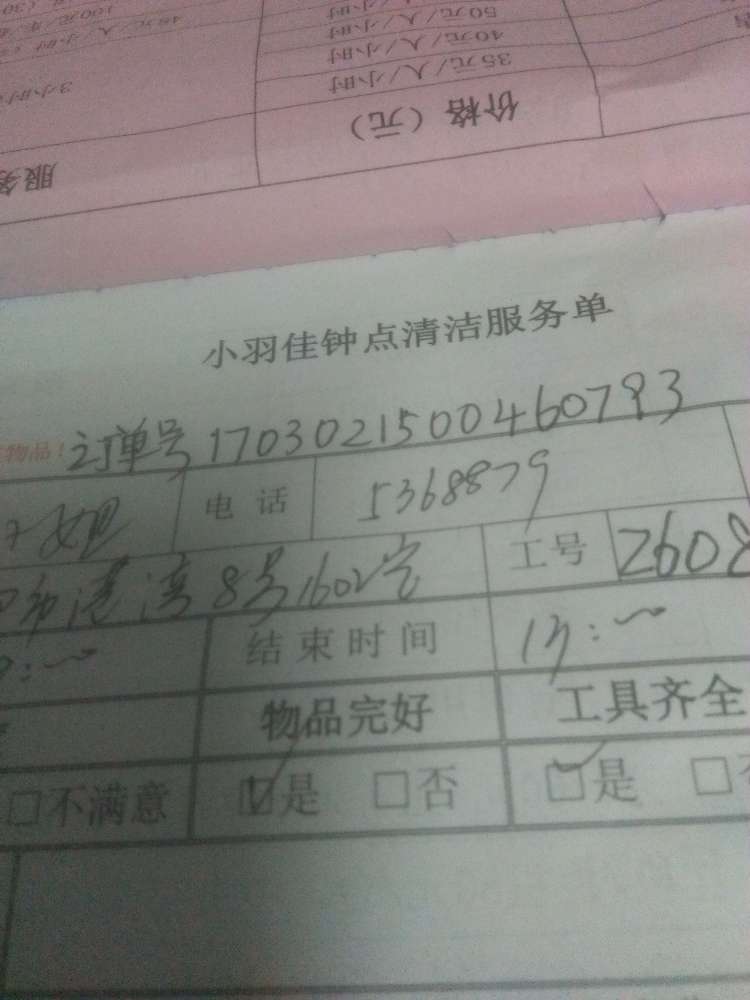 100元/
48元/人/小时
50元/人/小时
40元/人/小时
35元/人/小时
3小时
价格（元）
服务
小羽佳钟点清洁服务单
物品！ 订单号 1703021500460793
姐 电话 5368879
港湾8号1602室 工号 2608
结束时间
物品完好 工具齐全
□不满意 □是 □否 □是 □